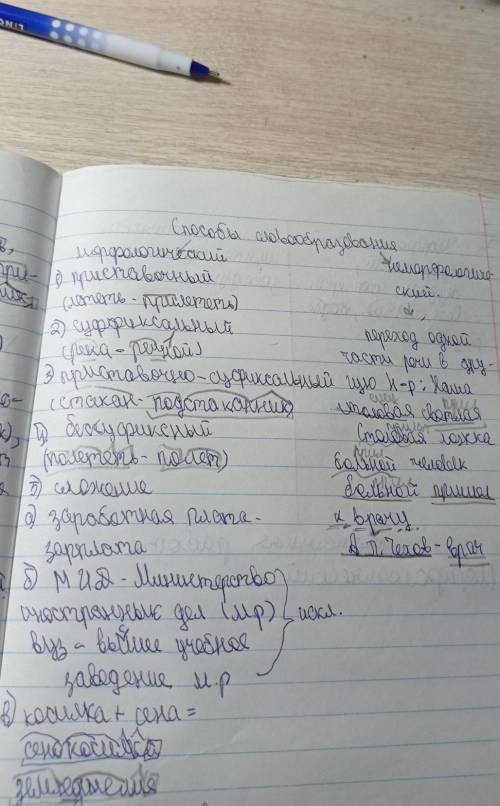 Способы словообразования
морфологический
1) приставочный
(лететь - прилететь)
2) суффиксальный
(река - речной)
3) приставочно-суфиксальный
(стакан - подстаканник)
4) бессуфиксный
(полететь - полет)
5) сложение
а) заработная плата -
зарплата
б) МИД - Министерство
иностранных дел (м.р)
вуз - высшее учебное
заведение м.р
искл.
в) косилка + сена =
сенокосилка
земледелие
неморфологиче-
ский.
переход одной
части речи в дру-
гую н-р: Наша
столовая светлая
Столовая ложка
больной человек
больной пришел
к врачу.
А.П. Чехов - врач